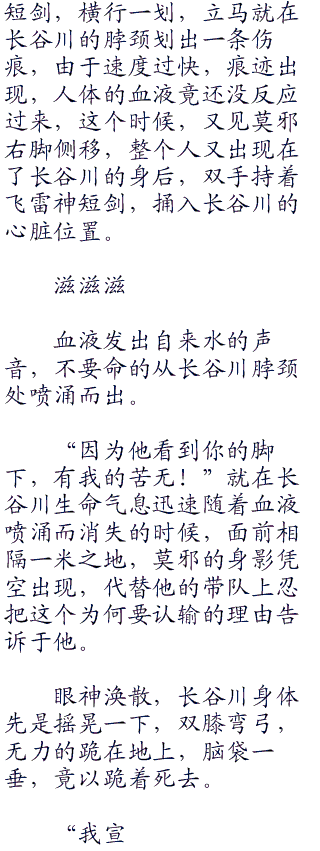 短剑，横行一划，立马就在
长谷川的脖颈划出一条伤
痕，由于速度过快，痕迹出
现，人体的血液竟还没反应
过来，这个时候，又见莫邪
右脚侧移，整个人又出现在
了长谷川的身后，双手持着
飞雷神短剑，捅入长谷川的
心脏位置。
滋滋滋
血液发出自来水的声
音，不要命的从长谷川脖颈
处喷涌而出。
“因为他看到你的脚
下，有我的苦无！”就在长
谷川生命气息迅速随着血液
喷涌而消失的时候，面前相
隔一米之地，莫邪的身影凭
空出现，代替他的带队上忍
把这个为何要认输的理由告
诉于他。
眼神涣散，长谷川身体
先是摇晃一下，双膝弯弓，
无力的跪在地上，脑袋一
垂，竟以跪着死去。
“我宣